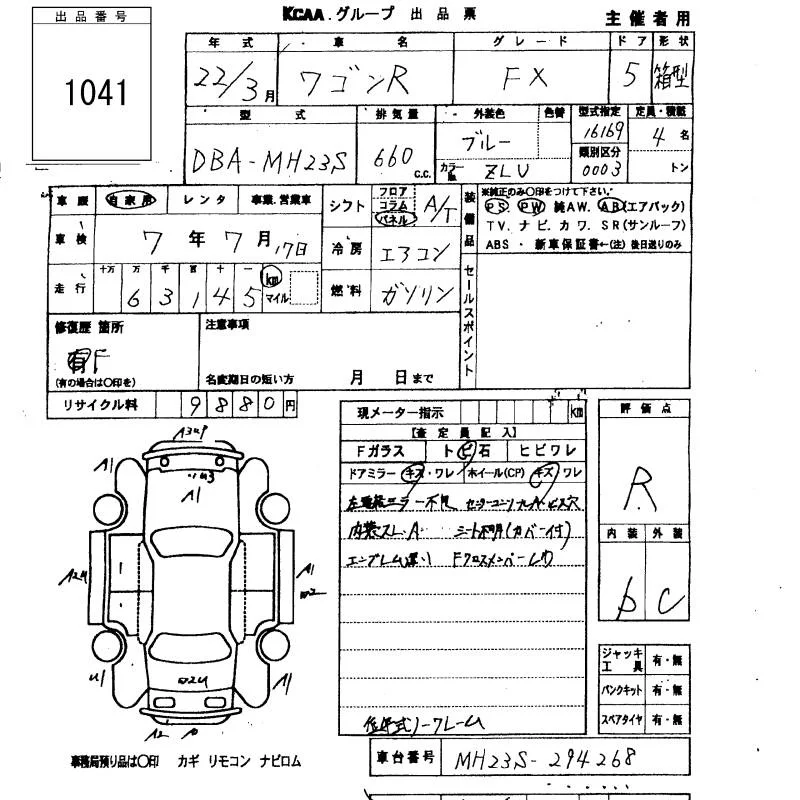 出品番号
KCAA.グループ 出品票
主催者用
1041
年式 車名 グレード ドア 形状
22/3月 ワゴンR FX 5 箱型
型式 排気量 外装色 色替 型式指定 定員・積載
DBA-MH23S 660 c.c. ブルー 16169 4名
カラーNo. ZLU 類別区分 0003 トン
車歴 自家用 レンタ 事業.営業車
シフト フロア コラム パネル A/T
装備品
※純正のみ○印をつけて下さい。
PS. PW. 純AW. AB(エアバック)
TV. ナビ. カワ. SR(サンルーフ)
ABS ・ 新車保証書←(注) 後日送りのみ
車検 7年7月17日
冷房 エアコン
走行 十万 万 千 百 十 一 km マイル
6 3 1 4 5
燃料 ガソリン
セールスポイント
修復歴 箇所
有F
(有の場合は○印を)
注意事項
名変期日の短い方 月 日まで
リサイクル料 9880円
現メーター指示 km
【査定員記入】
Fガラス トビ石 ヒビワレ
ドアミラー キズ・ワレ ホイール(CP) キズ・ワレ
内装スレ.A シート不明(カバー付)
Fクロスメンバー
評価点
R
内装 外装
b C
ジャッキ工具 有・無
パンクキット 有・無
スペアタイヤ 有・無
A1
A1
A1
A1
事務局預り品は○印 カギ リモコン ナビロム
車台番号 MH23S-294268